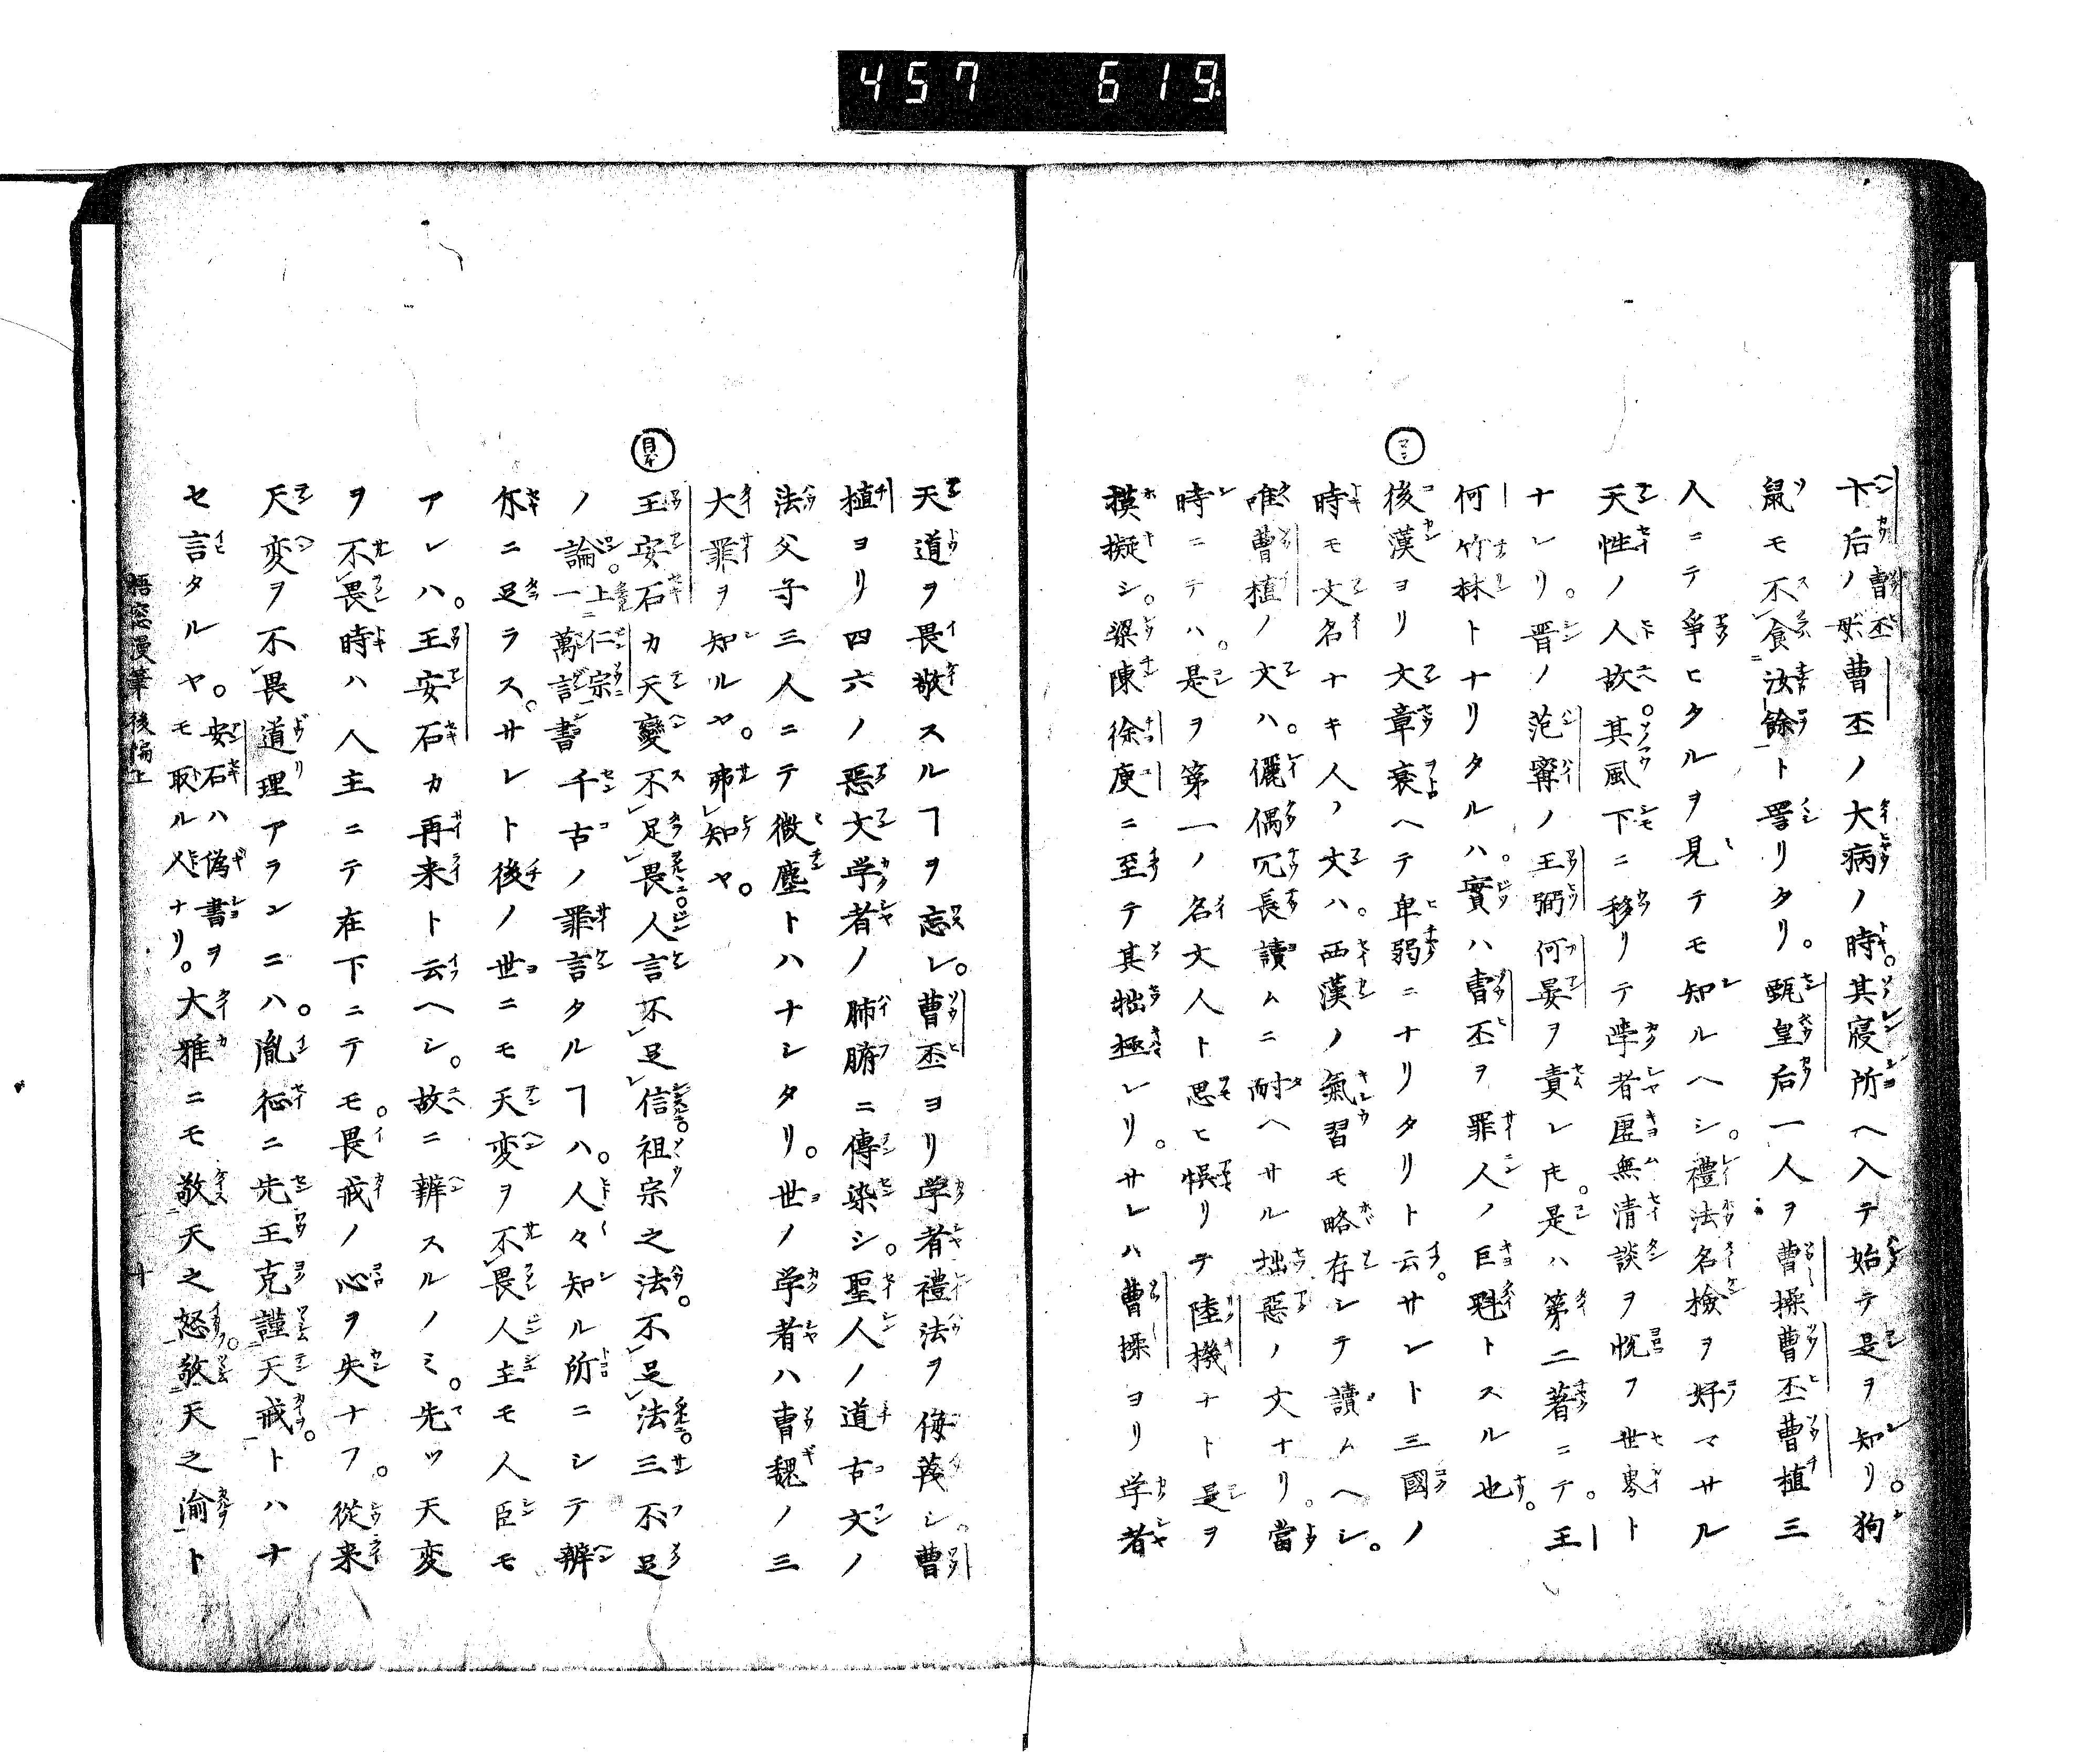 457 619.
卞后ノ曹丕母曹丕ノ大病ノ時。其寝所ヘ入テ始テ是ヲ知リ。狗
鼠モ不食汝餘ト詈リタリ。甄皇后一人ヲ曹操曹丕曹植三
人ニテ爭ヒタルヲ見テモ知ルヘシ。禮法名檢ヲ好マサル
天性ノ人故。其風下ニ移リテ學者虚無清談ヲ悦フ世界ト
ナレリ。晋ノ范甯ノ王弼何晏ヲ責レ𪜈。是ハ第二著ニテ。王
何竹林トナリタルハ。實ハ曹丕ヲ罪人ノ巨魁トスル也。
後漢ヨリ文章衰ヘテ卑弱ニナリタリト云。サレト三國ノ
時モ文名ナキ人ノ文ハ。西漢ノ氣習モ略存シテ讀ムヘシ。
唯曹植ノ文ハ。儷偶冗長讀ムニ耐ヘサル拙惡ノ文ナリ。當
時ニテハ。是ヲ第一ノ名文人ト思ヒ悞リテ陸機ナト是ヲ
摸擬シ。梁陳徐庾ニ至テ其拙極レリ。サレハ曹操ヨリ学者
天道ヲ畏敬スルヿヲ忘レ。曹丕ヨリ学者禮法ヲ侮蔑シ。曹
植ヨリ四六ノ惡文学者ノ肺腑ニ傳染シ。聖人ノ道古文ノ
法父子三人ニテ微塵トハナシタリ。世ノ学者ハ曹魏ノ三
大罪ヲ知ルヤ。弗知ヤ。
王安石カ天變不足畏人言不足信祖宗之法。不足法三不足
ノ論。上仁宗一萬言書千古ノ罪言タルヿハ。人々知ル所ニシテ辨
作ニ足ラス。サレト後ノ世ニモ天変ヲ不畏人主モ人臣モ
アレハ。王安石カ再来ト云ヘシ。故ニ辨スルノミ。先ツ天変
ヲ不畏時ハ人主ニテ在下ニテモ。畏戒ノ心ヲ失ナフ。從来
天変ヲ不畏道理アランニハ。胤征ニ先王克謹天戒。トハナ
セ言タルヤ。安石ハ偽書ヲモ取ル人ナリ。大雅ニモ敬天之怒。敬天之渝ト
梧窓漫筆後編上 十